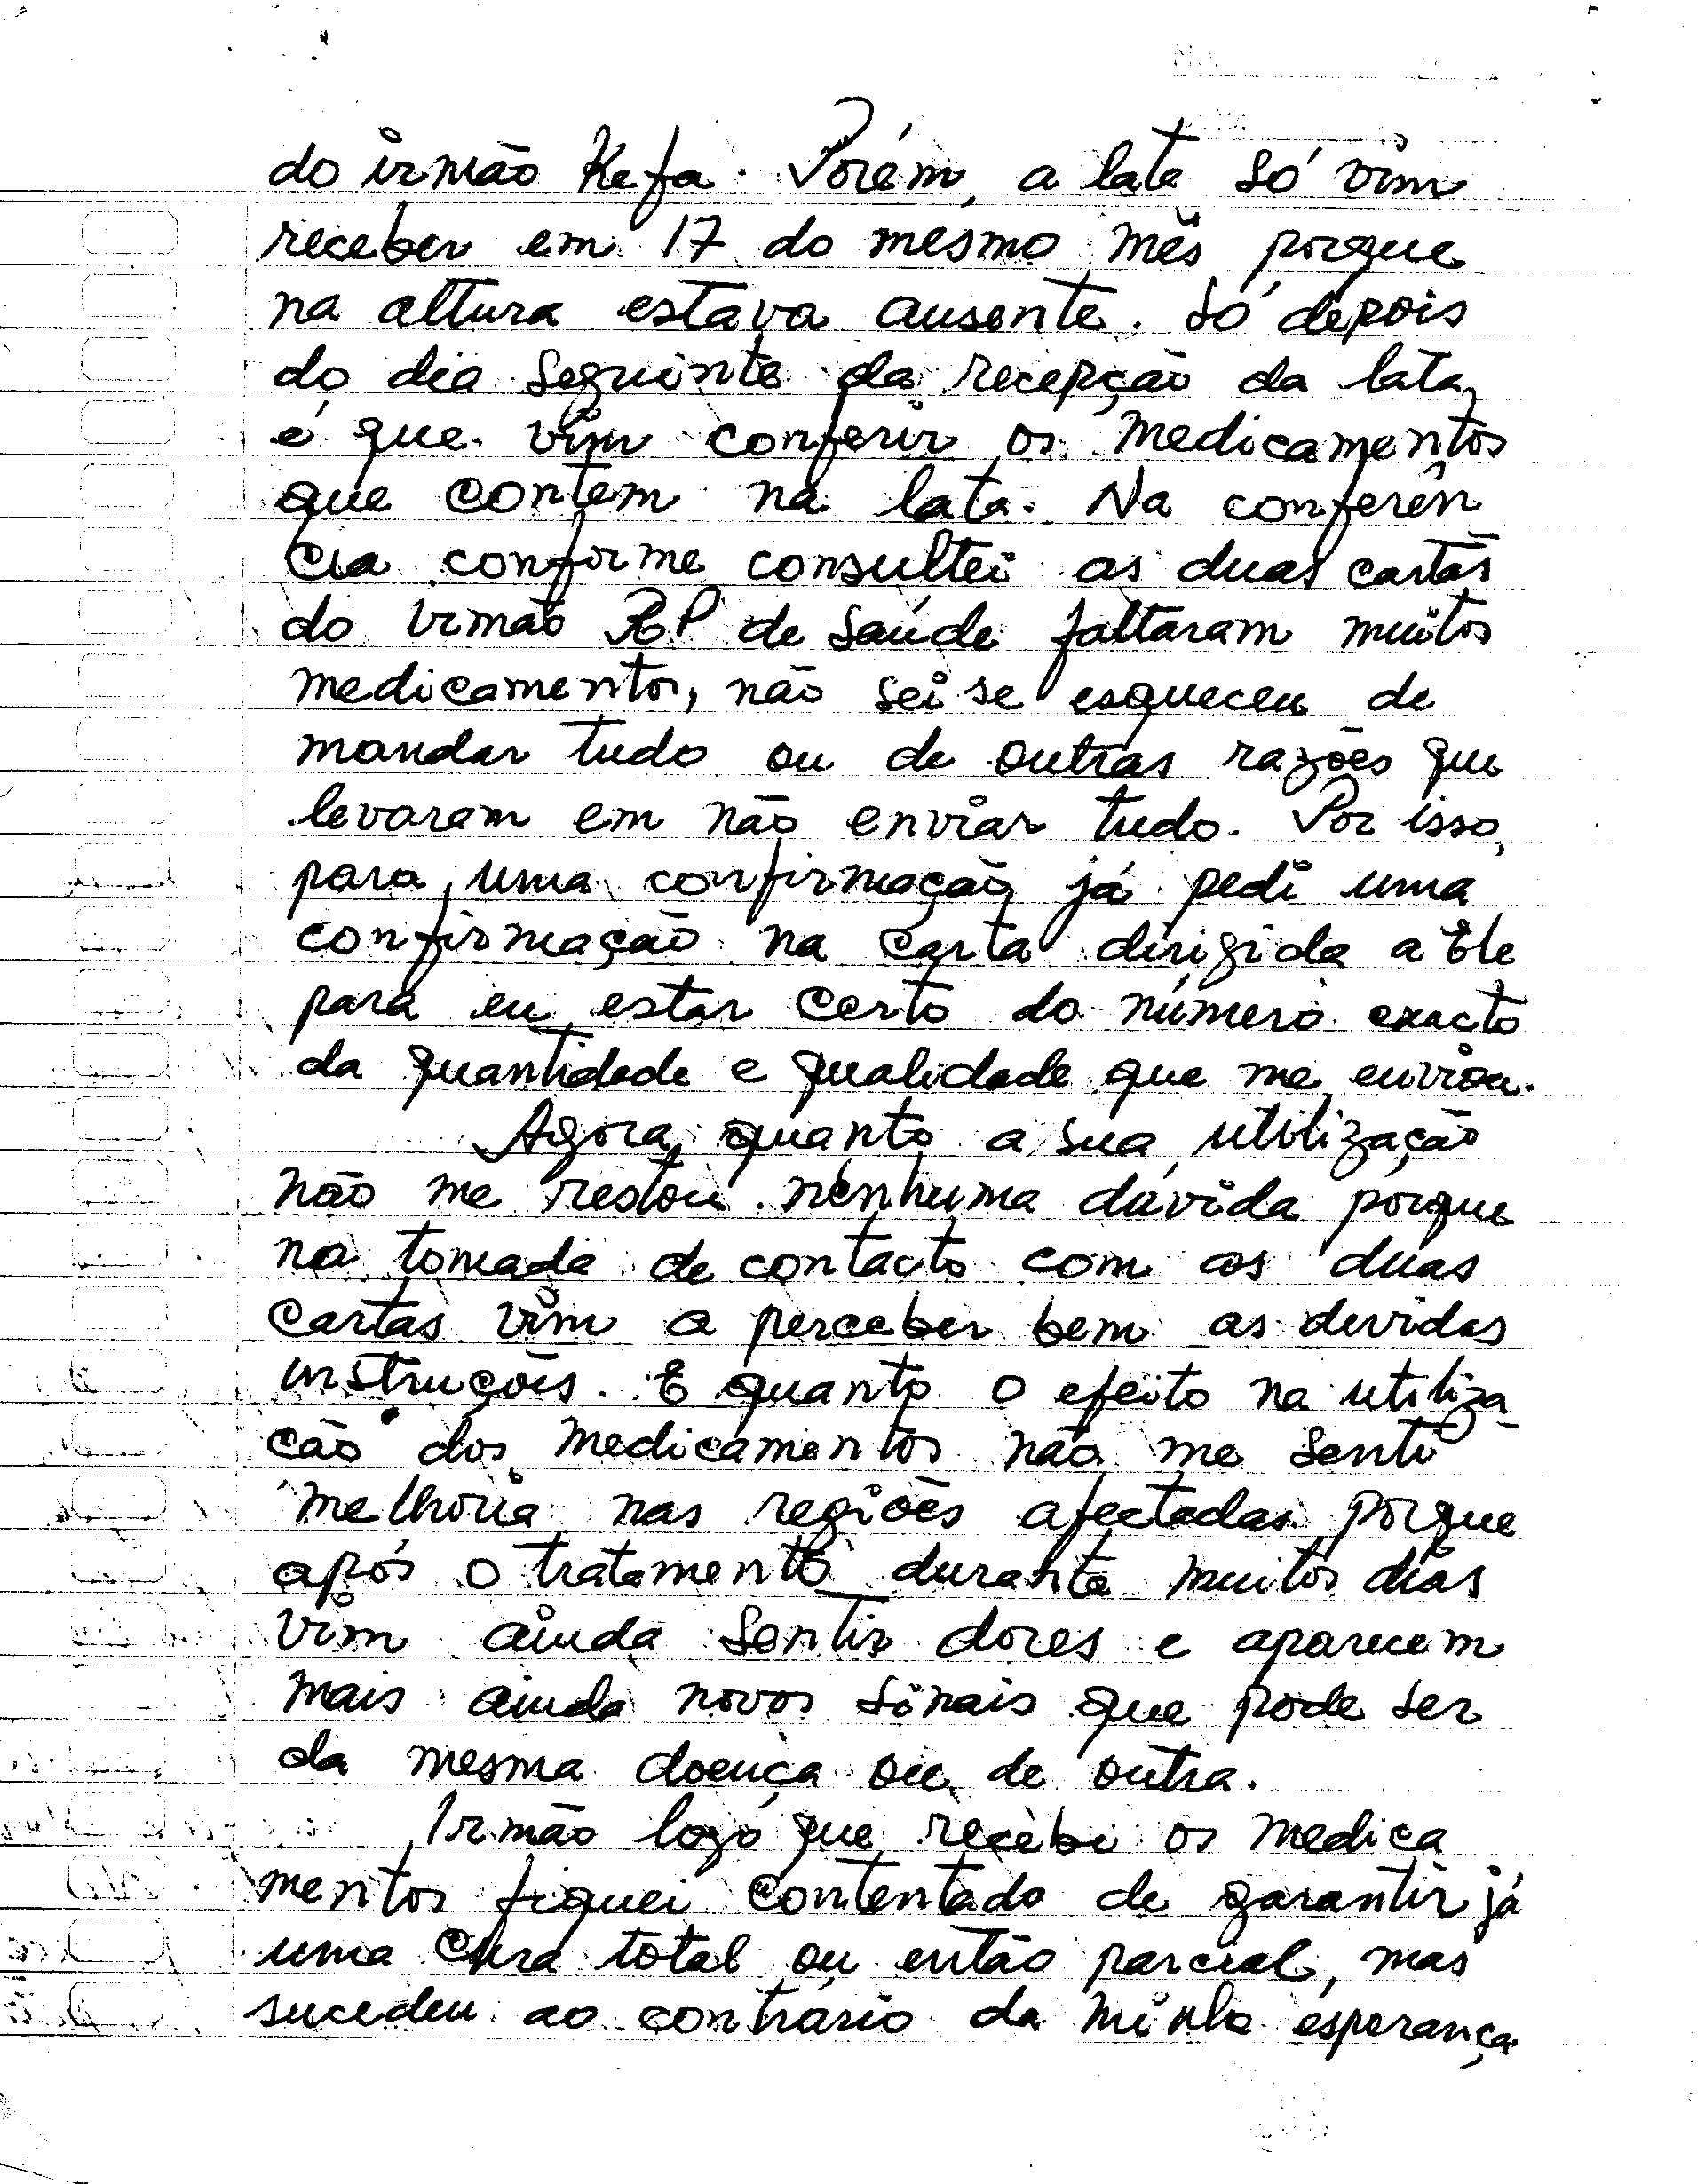 do irmão Kefa. Porém, a lata só vim
receber em 17 do mesmo mês porque
na altura estava ausente. Só depois
do dia seguinte da recepção da lata,
é que vim conferir os medicamentos
que contem na lata. Na conferên
cia conforme consultei as duas cartas
do irmão RP de Saúde faltaram muitos
medicamentos, não sei se esqueceu de
mandar tudo ou de outras razões que
levaram em não enviar tudo. Por isso,
para uma confirmação já pedi uma
confirmação na carta dirigida a Ele
para eu estar certo do número exacto
da quantidade e qualidade que me enviou.
Agora, quanto a sua utilização
não me restou nenhuma dúvida porque
na tomada de contacto com as duas
cartas vim a perceber bem as devidas
instruções. E quanto o efeito na utiliza
ção dos medicamentos não me senti
melhoria nas regiões afectadas porque
após o tratamento durante muitos dias
vim ainda sentir dores e aparecem
mais ainda novos sinais que pode ser
da mesma doença ou de outra.
Irmão logo que recebi os medica
mentos fiquei contentado de garantir já
uma cura total ou então parcial, mas
sucedeu ao contrário da minha esperança